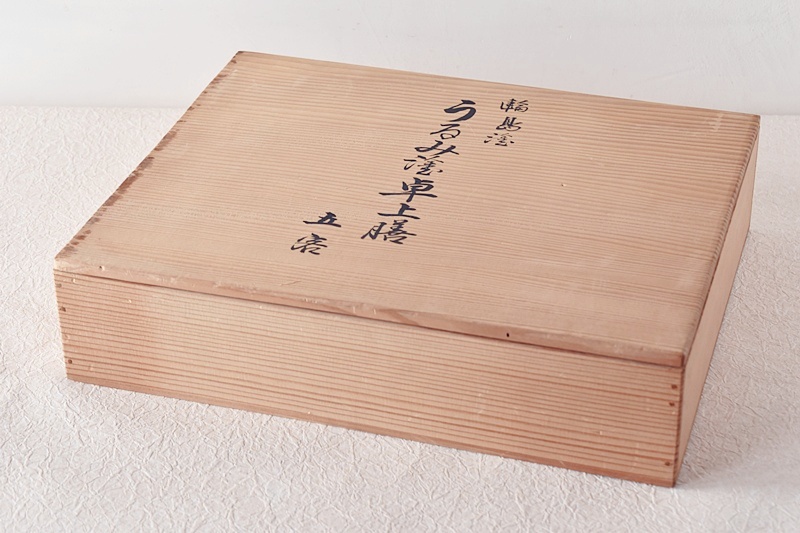 輪島塗
うるみ塗卓上膳
五客